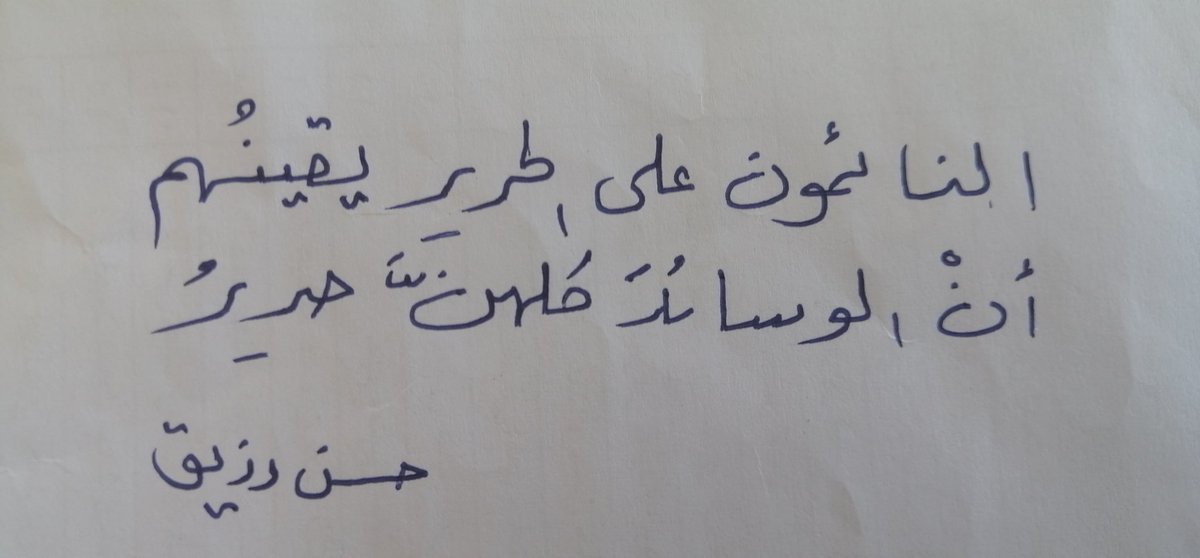 النائمون على الحرير يقينُهم
أنْ الوسائدَ كلهنَّ حريرُ
حسن رزيق